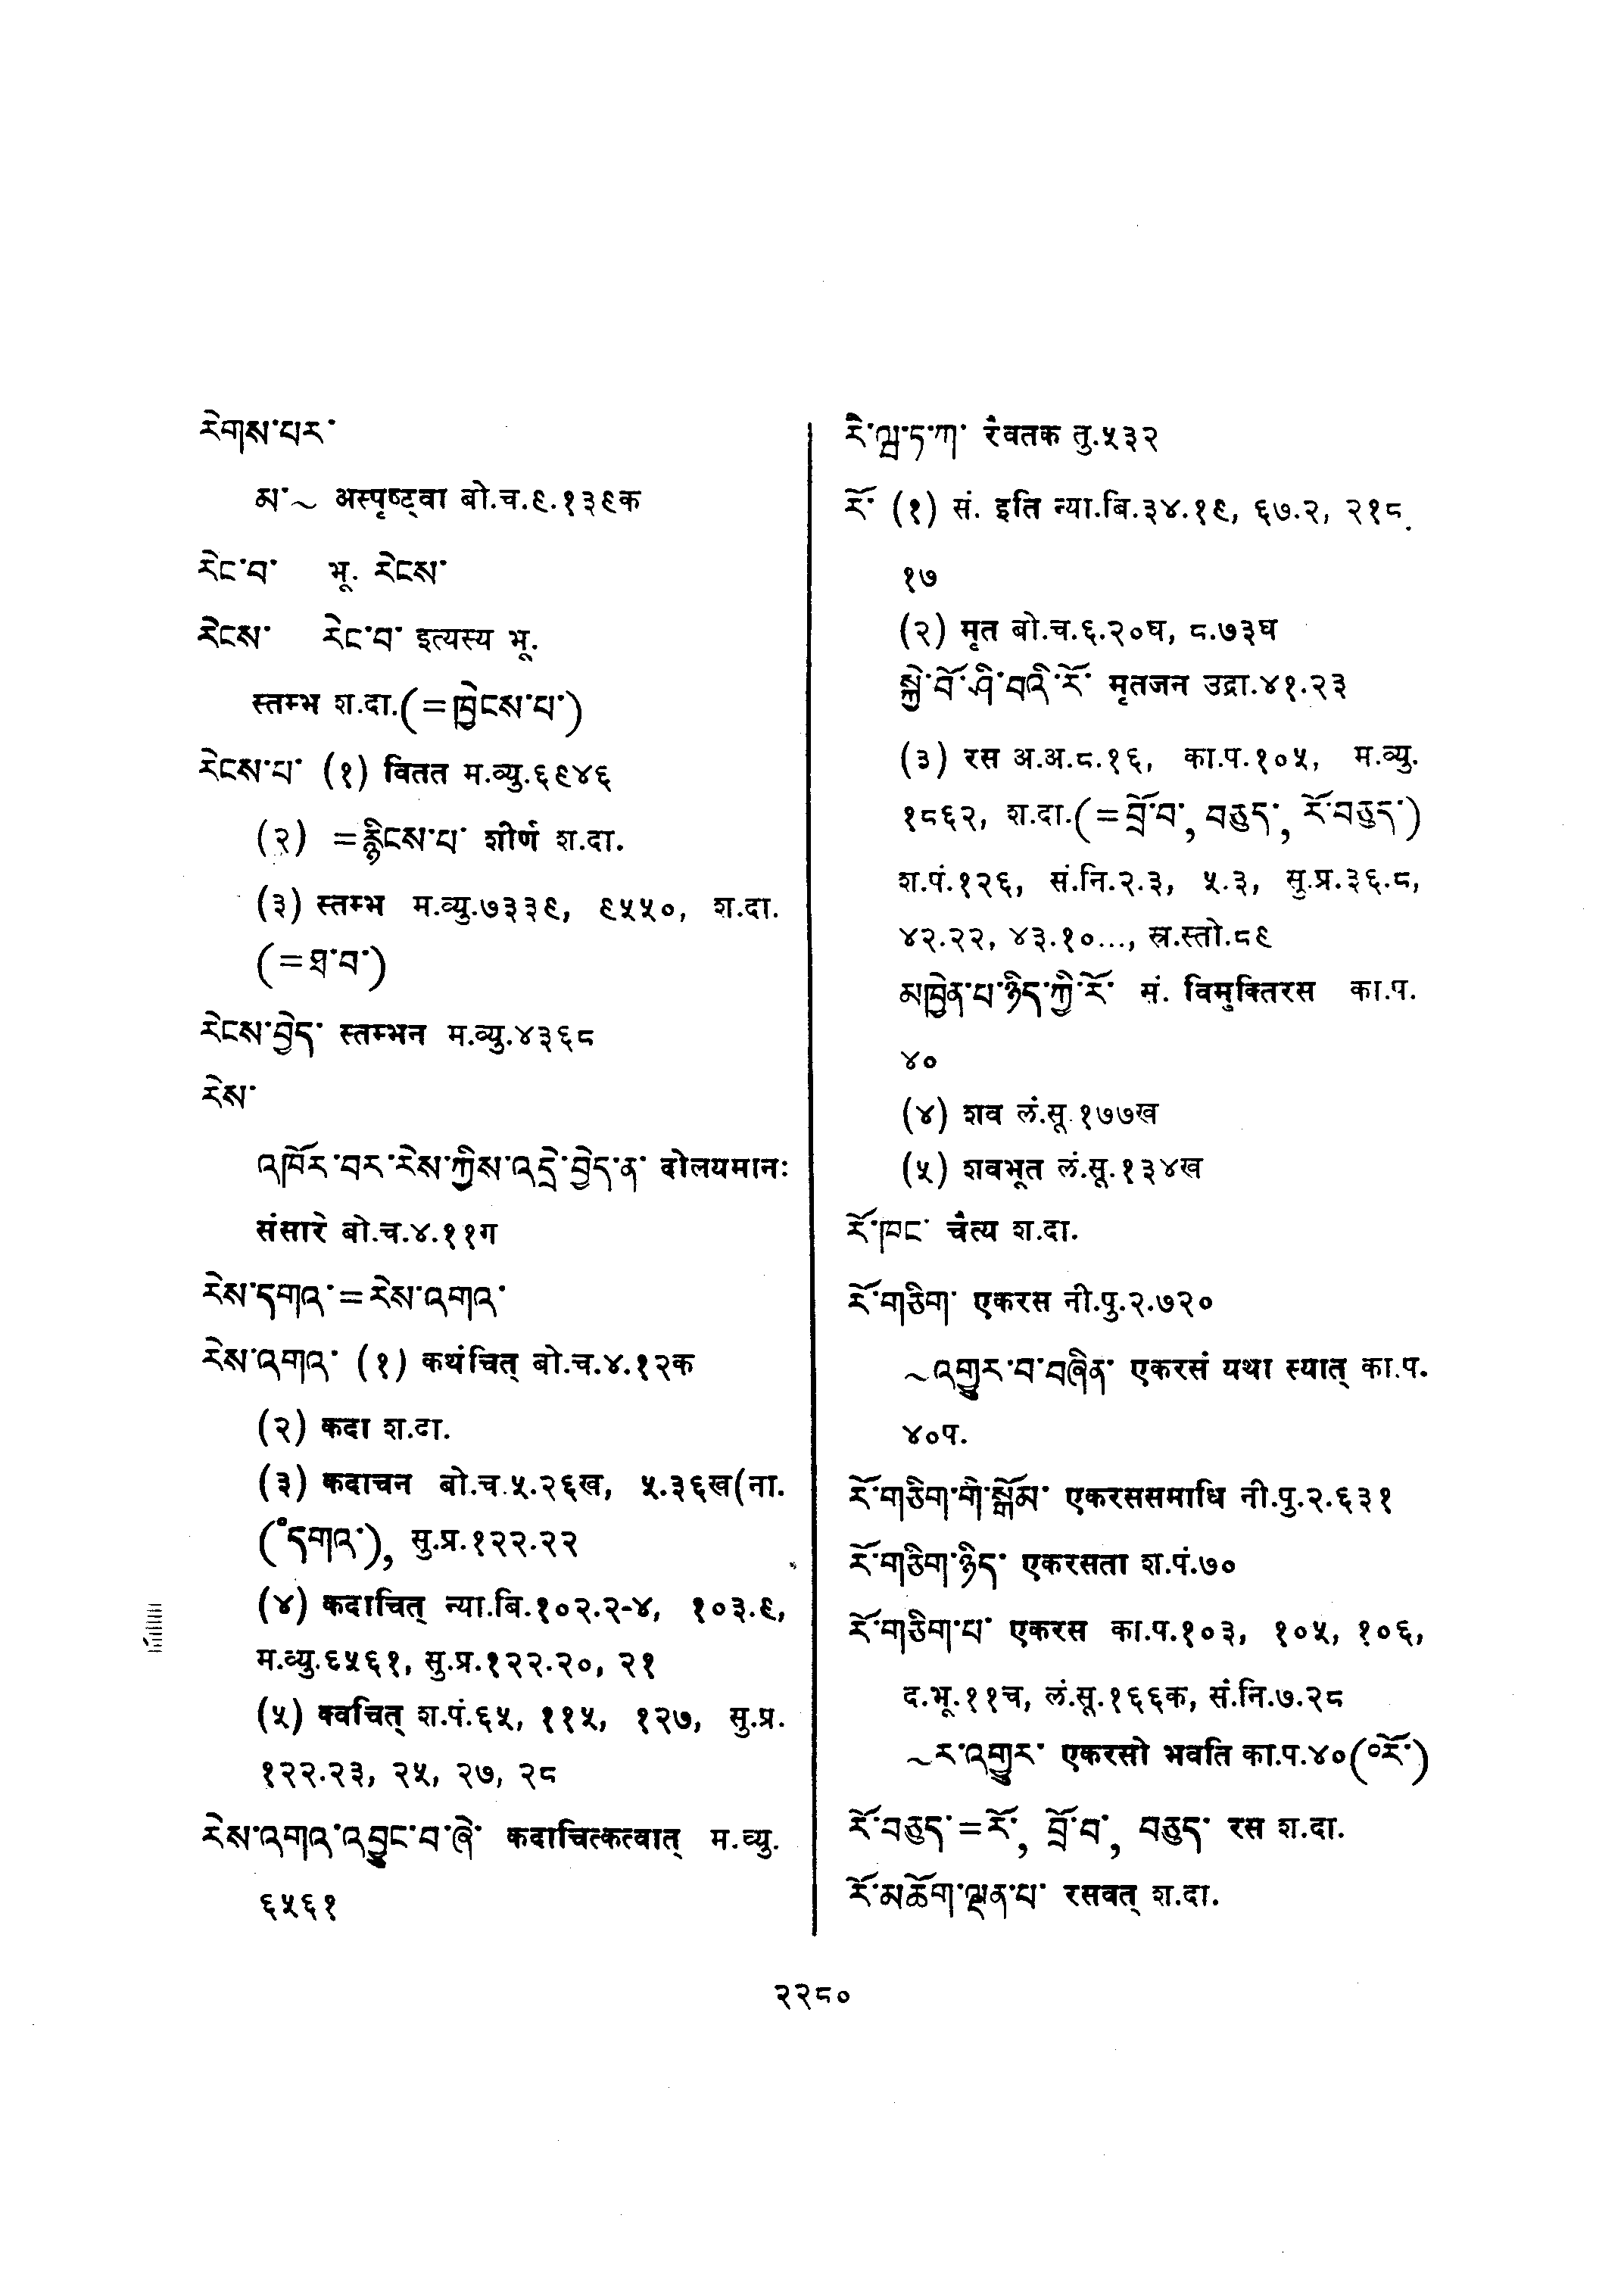 རེགས་པར་
མ་~ अस्पृष्ट्वा बो.च.९.१३९क
རེང་བ་ भू. རེངས་
རེངས་ རེང་བ་ इत्यस्य भू.
स्तम्भ श.दा.(=ཁྲེངས་པ་)
རེངས་པ་ (१) वितत म.व्यु.६९४६
(२) =རྙིངས་པ་ शीर्ण श.दा.
(३) स्तम्भ म.व्यु.७३३९, ९५५०, श.दा.
(=ཐ་བ་)
རེངས་བྱེད་ स्तम्भन म.व्यु.४३६८
རེས་
འཁོར་བར་རེས་ཀྱིས་འདྲེ་བྱེད་ན་ दोलयमानः
संसारे बो.च.४.११ग
རེས་དགའ་=རེས་འགའ་
རེས་འགའ་ (१) कथंचित् बो.च.४.१२क
(२) कदा श.दा.
(३) कदाचन बो.च.५.२६ख, ५.३६ख(ना.
(°དགའ་), सु.प्र.१२२.२२
(४) कदाचित् न्या.बि.१०२.२-४, १०३.९,
म.व्यु.६५६१, सु.प्र.१२२.२०, २१
(५) क्वचित् श.पं.६५, ११५, १२७, सु.प्र.
१२२.२३, २५, २७, २८
རེས་འགའ་འབྱུང་བ་ཞེ་ कदाचित्कत्वात् म.व्यु.
६५६१
རཻ་ལྦ་ཏ་ཀ་ रैवतक तु.५३२
རོ་ (१) सं. इति न्या.बि.३४.१९, ६७.२, २१८.
१७
(२) मृत बो.च.६.२०घ, ८.७३घ
སྐྱེ་བོ་ཤི་བའི་རོ་ मृतजन उद्रा.४१.२३
(३) रस अ.अ.८.१६, का.प.१०५, म.व्यु.
१८६२, श.दा.(=བྲོ་བ་, བཅུད་, རོ་བཅུད་)
श.पं.१२६, सं.नि.२.३, ५.३, सु.प्र.३६.८,
४२.२२, ४३.१०..., स्र.स्तो.८९
མཁྲེན་པ་ཉིད་ཀྱི་རོ་ सं. विमुक्तिरस का.प.
४०
(४) शव लं.सू.१७७ख
(५) शवभूत लं.सू.१३४ख
རོ་ཁང་ चैत्य श.दा.
རོ་གཅིག་ एकरस नी.पु.२.७२०
~འགྱུར་བ་བཞིན་ एकरसं यथा स्यात् का.प.
४०प.
རོ་གཅིག་གི་སྒོམ་ एकरससमाधि नी.पु.२.६३१
རོ་གཅིག་ཉིད་ एकरसता श.पं.७०
རོ་གཅིག་པ་ एकरस का.प.१०३, १०५, १०६,
द.भू.११च, लं.सू.१६६क, सं.नि.७.२८
~ར་འགྱུར་ एकरसो भवति का.प.४०(°རོ་)
རོ་བཅུད་=རོ་, བྲོ་བ་, བཅུད་ रस श.दा.
རོ་མཆོག་ལྡན་པ་ रसवत् श.दा.
२२८०